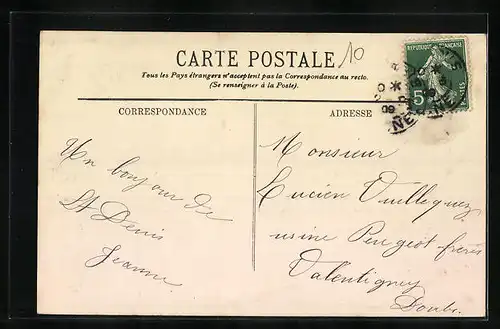 CARTE POSTALE
10
Tous les Pays étrangers n'acceptent pas la Correspondance au recto.
(Se renseigner à la Poste).
REPUBLIQUE FRANÇAISE
5
09
CORRESPONDANCE
ADRESSE
Un bonjour de
St Denis
Jeanne
Monsieur
Lucien Vuillequez
usine Peugeot frères
Valentigney
Doubs